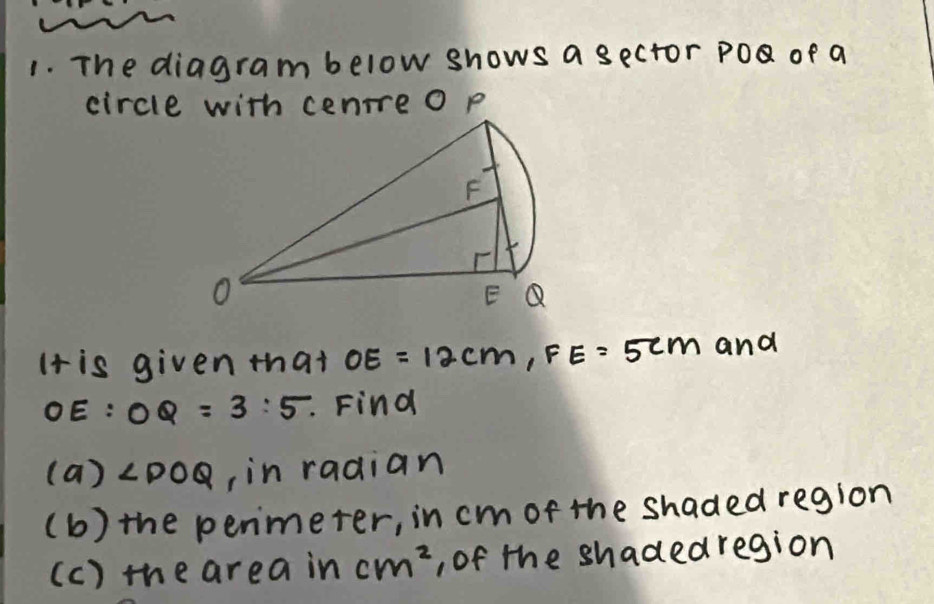 1. The diagram below shows a sector POQ of a
circle with centre O P
F
O
E Q
It is given that OE = 12cm, FE = 5cm and
OE : OQ = 3 : 5. Find
(a) ∠POQ, in radian
(b) the perimeter, in cm of the shaded region
(c) the area in cm², of the shaded region